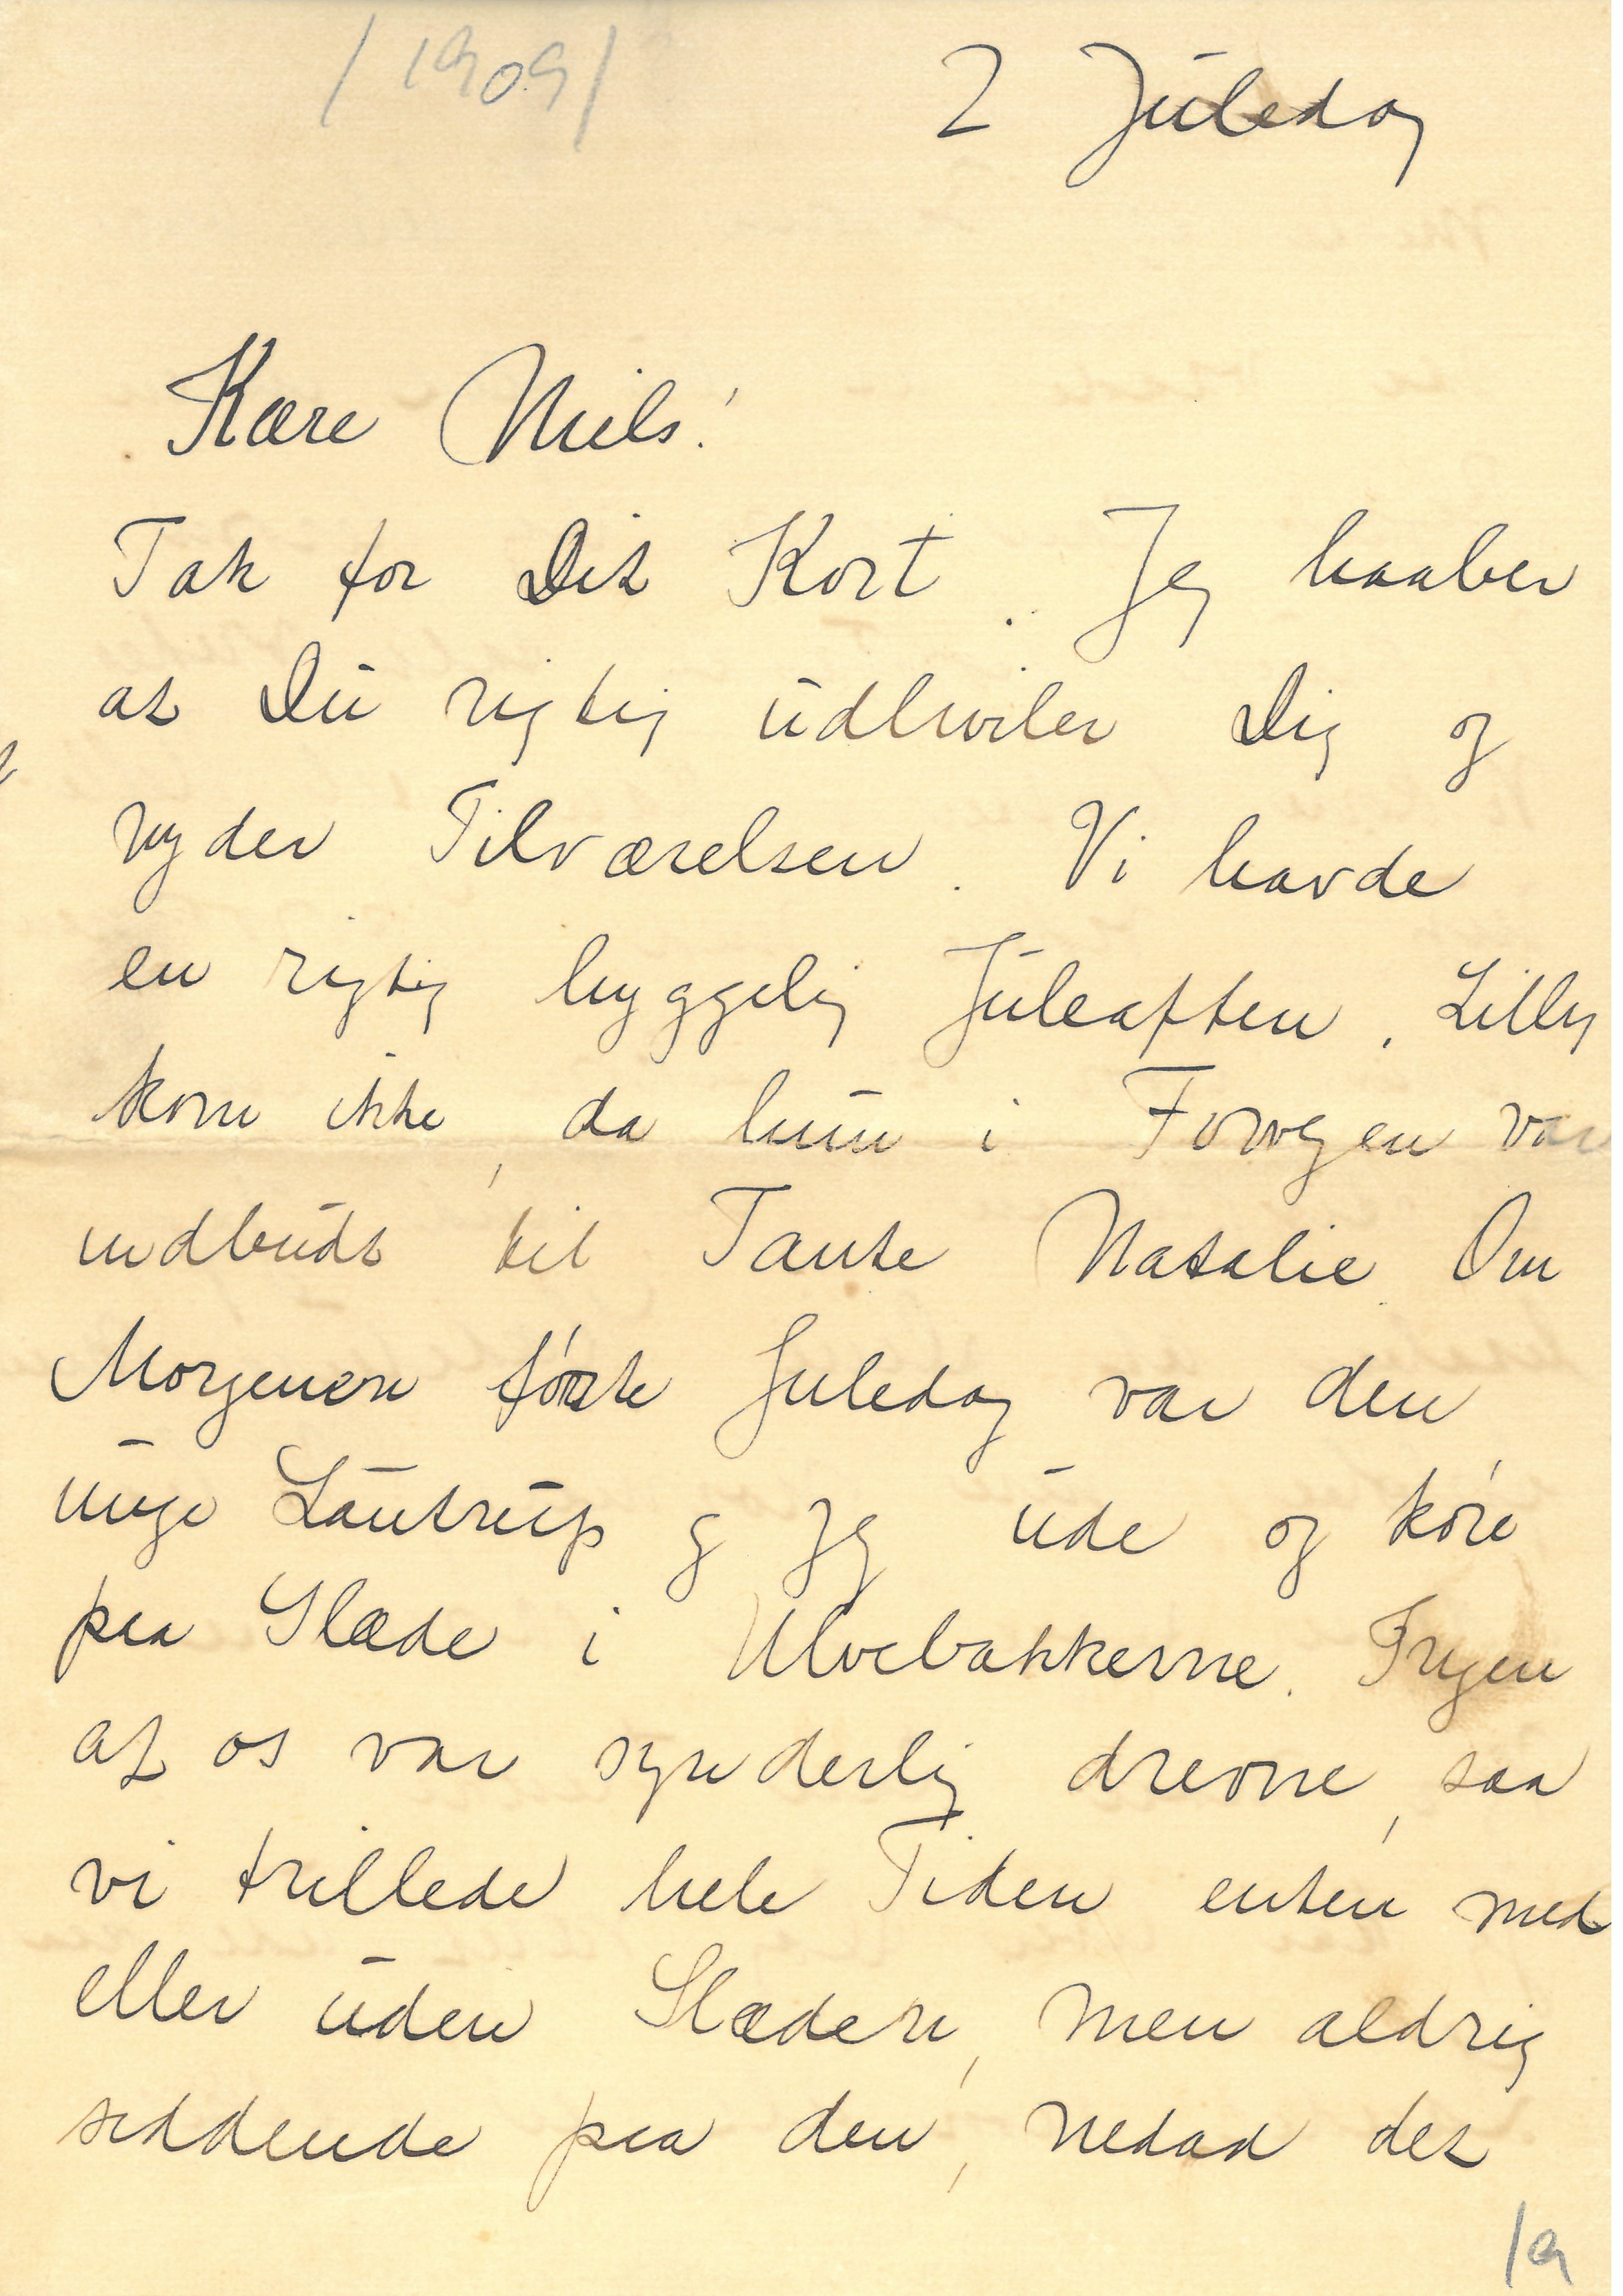 /1909/
2 Juledag
Kære Niels!
Tak for Dit Kort. Jeg haaber
at Du rigtig udhviler Dig og
nyder Tilværelsen. Vi havde
en rigtig hyggelig Juleaften. Lilly
kom ikke, da hun i Forvejen var
indbudt til Tante Natalie. Om
Morgenen første Juledag var den
unge Lautrup og jeg ude og køre
paa Slæde i Ulvebakkerne. Ingen
af os var synderlig drevne, saa
vi trillede hele Tiden enten med
eller uden Slæden, men aldrig
siddende paa den, nedad det
1a